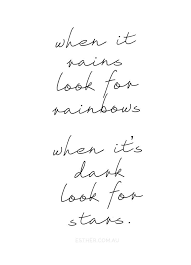 when it
rains
look for
rainbows
when it's
dark
look for
stars.